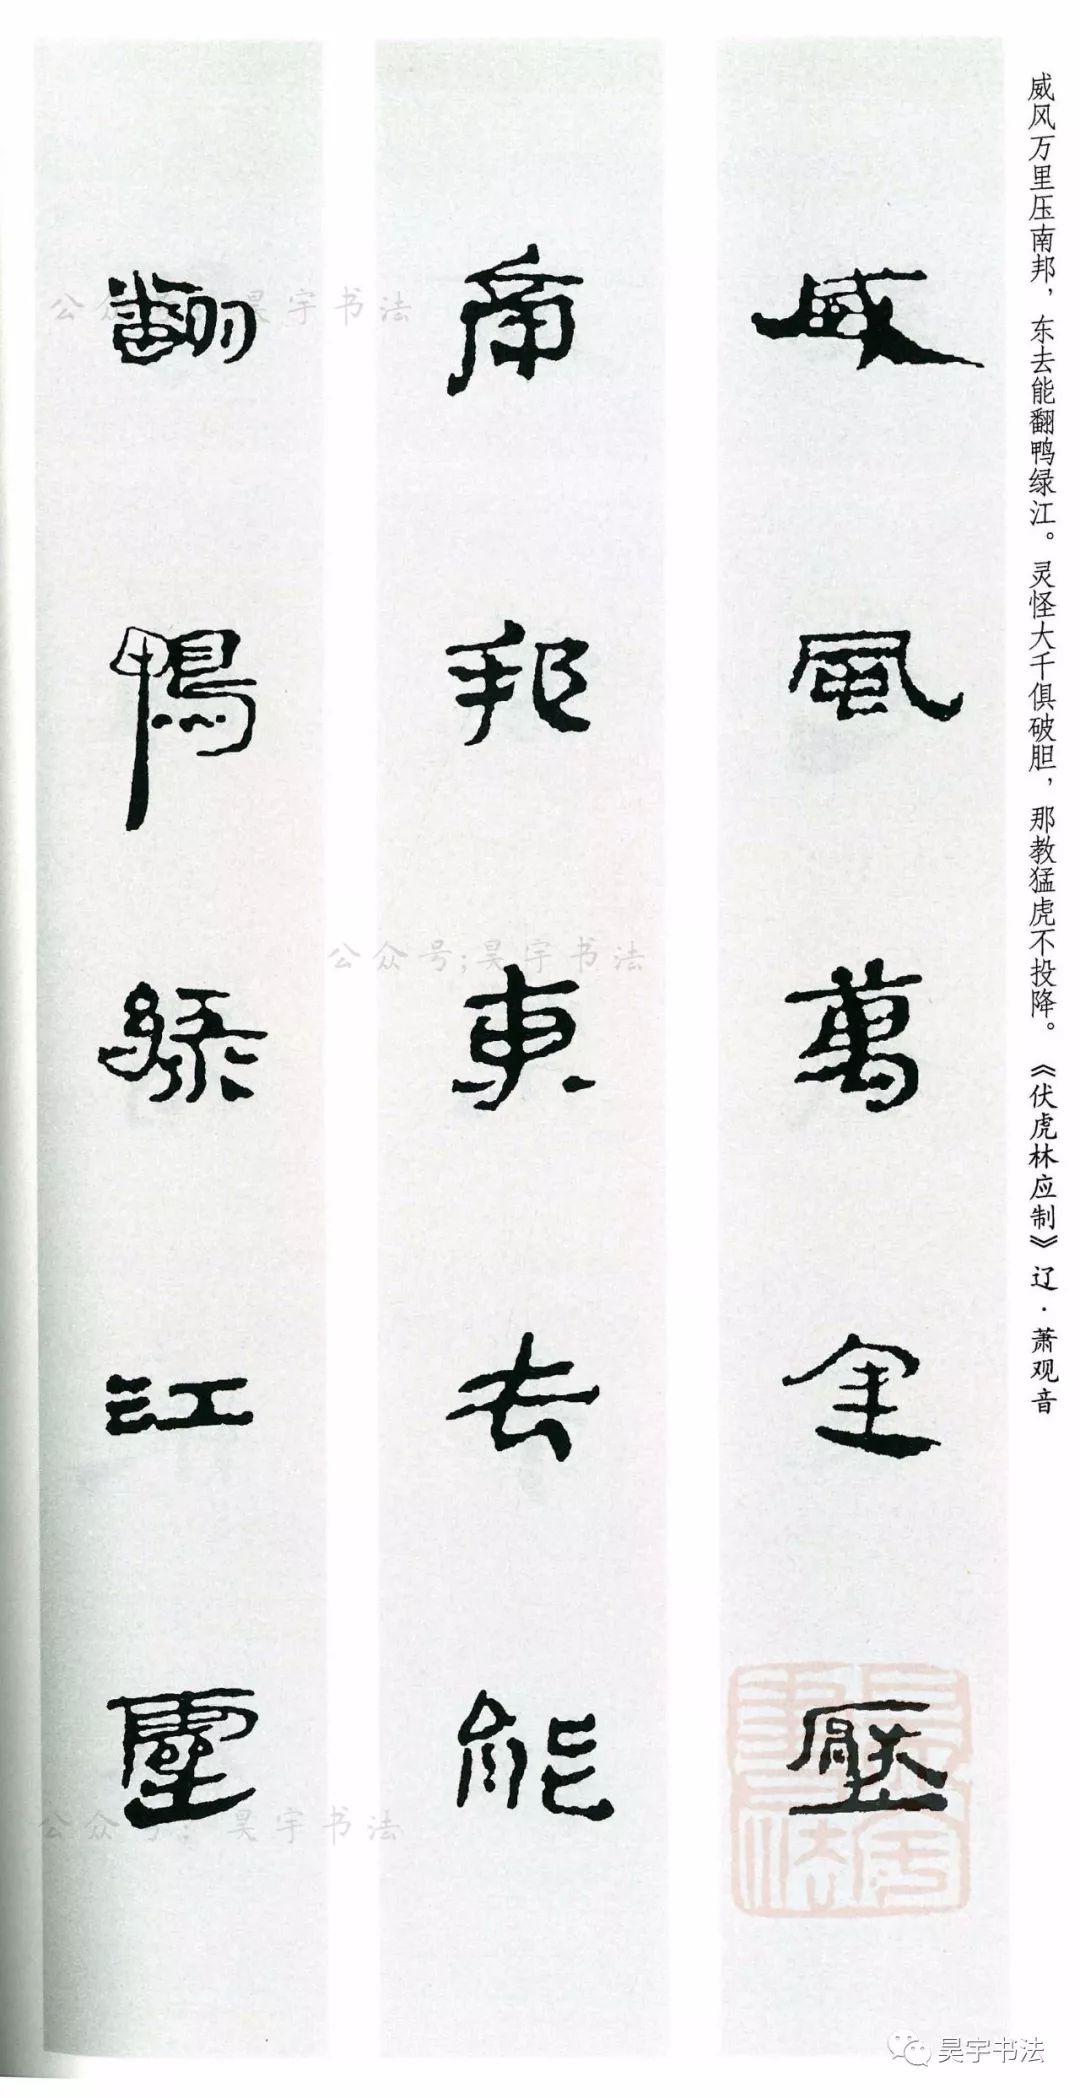 威风万里压南邦，东去能翻鸭绿江。灵怪大千俱破胆，那教猛虎不投降。《伏虎林应制》辽·萧观音
威風萬里壓
南邦東去能
翻鴨緑江靈
公众号:昊宇书法
公众号;昊宇书法
公众号:昊宇书法
昊宇书法
昊宇书法